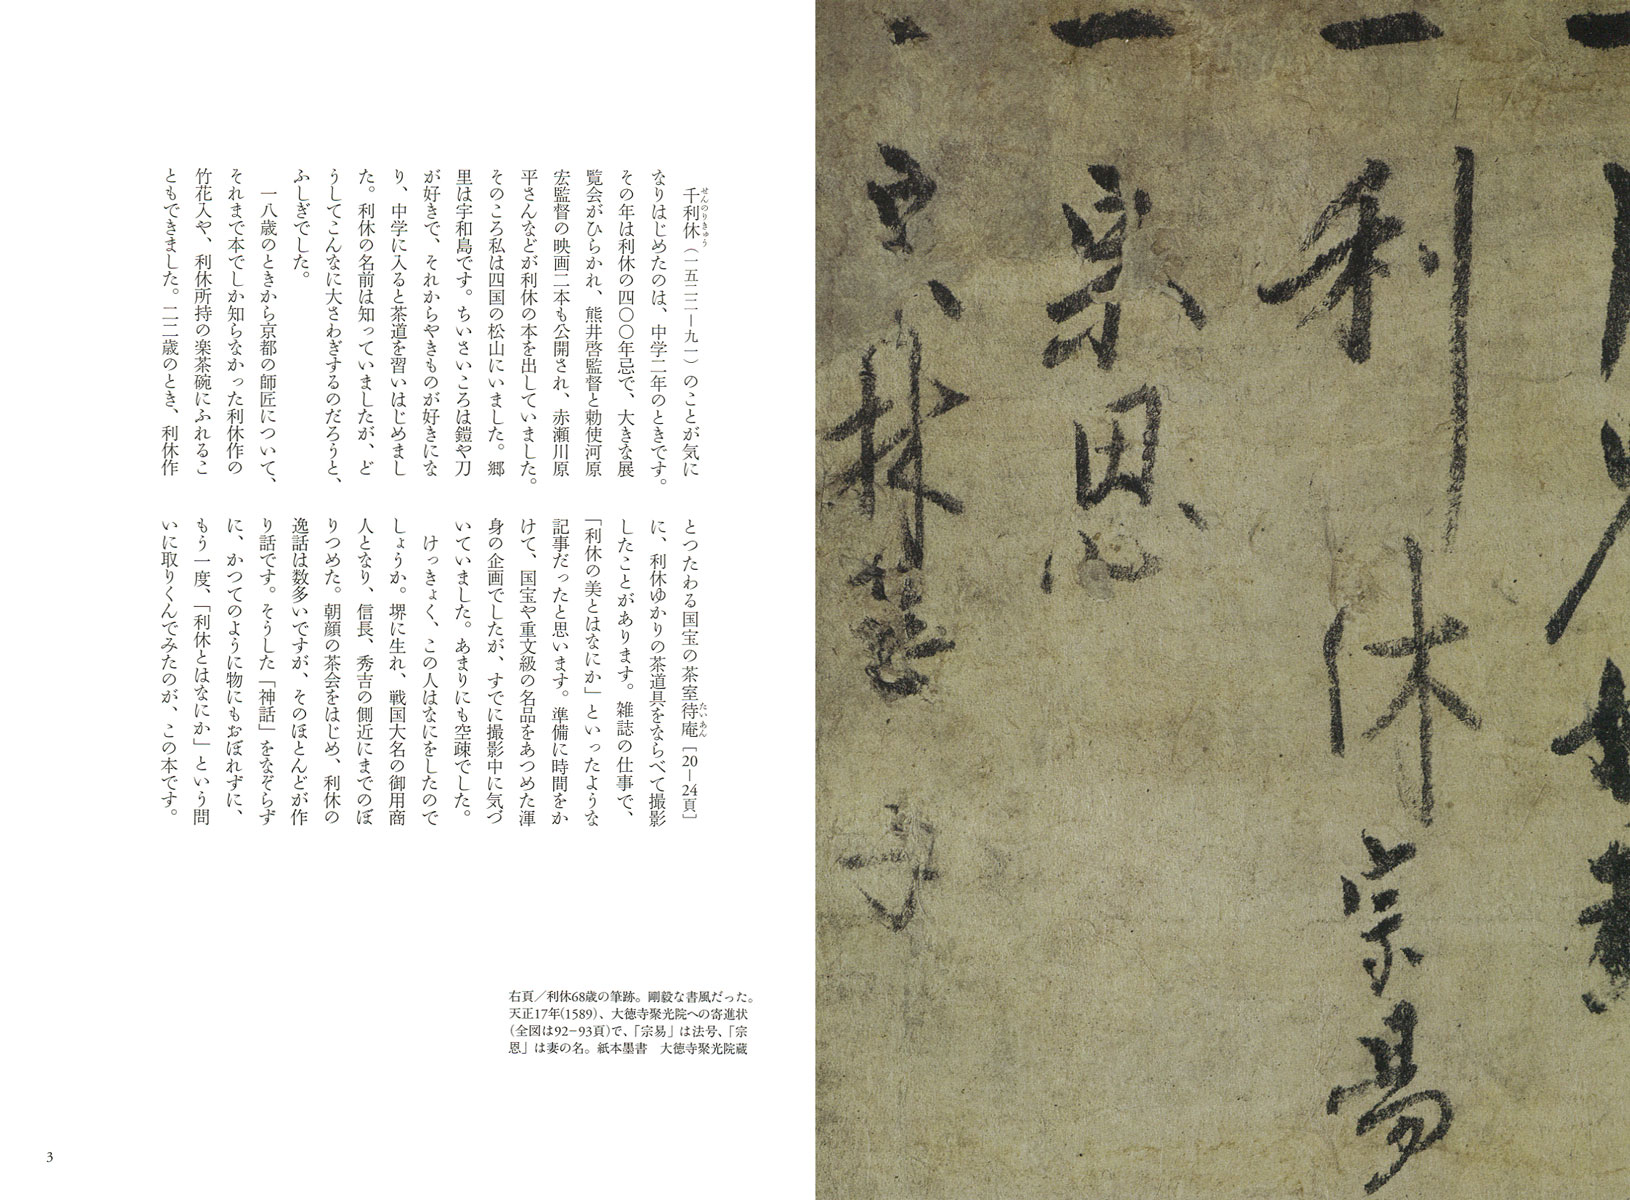 一 利休宗易
一 宗恩
宗林童子
千利休（一五二二ー九一）のことが気に
せんのりきゅう
なりはじめたのは、中学二年のときです。
その年は利休の四〇〇年忌で、大きな展
覧会がひらかれ、熊井啓監督と勅使河原
宏監督の映画二本も公開され、赤瀬川原
平さんなどが利休の本を出していました。
そのころ私は四国の松山にいました。郷
里は宇和島です。ちいさいころは鎧や刀
が好きで、それからやきものが好きにな
り、中学に入ると茶道を習いはじめまし
た。利休の名前は知っていましたが、ど
うしてこんなに大さわぎするのだろうと、
ふしぎでした。
一八歳のときから京都の師匠について、
それまで本でしか知らなかった利休作の
竹花入や、利休所持の楽茶碗にふれるこ
ともできました。二二歳のとき、利休作
とつたわる国宝の茶室待庵［20ー24頁］
たいあん
に、利休ゆかりの茶道具をならべて撮影
したことがあります。雑誌の仕事で、
「利休の美とはなにか」といったような
記事だったと思います。準備に時間をか
けて、国宝や重文級の名品をあつめた渾
身の企画でしたが、すでに撮影中に気づ
いていました。あまりにも空疎でした。
けっきょく、この人はなにをしたので
しょうか。堺に生れ、戦国大名の御用商
人となり、信長、秀吉の側近にまでのぼ
りつめた。朝顔の茶会をはじめ、利休の
逸話は数多いですが、そのほとんどが作
り話です。そうした「神話」をなぞらず
に、かつてのように物にもおぼれずに、
もう一度、「利休とはなにか」という問
いに取りくんでみたのが、この本です。
右頁／利休68歳の筆跡。剛毅な書風だった。
天正17年(1589)、大徳寺聚光院への寄進状
（全図は92−93頁）で、「宗易」は法号、「宗
恩」は妻の名。紙本墨書　大徳寺聚光院蔵
3